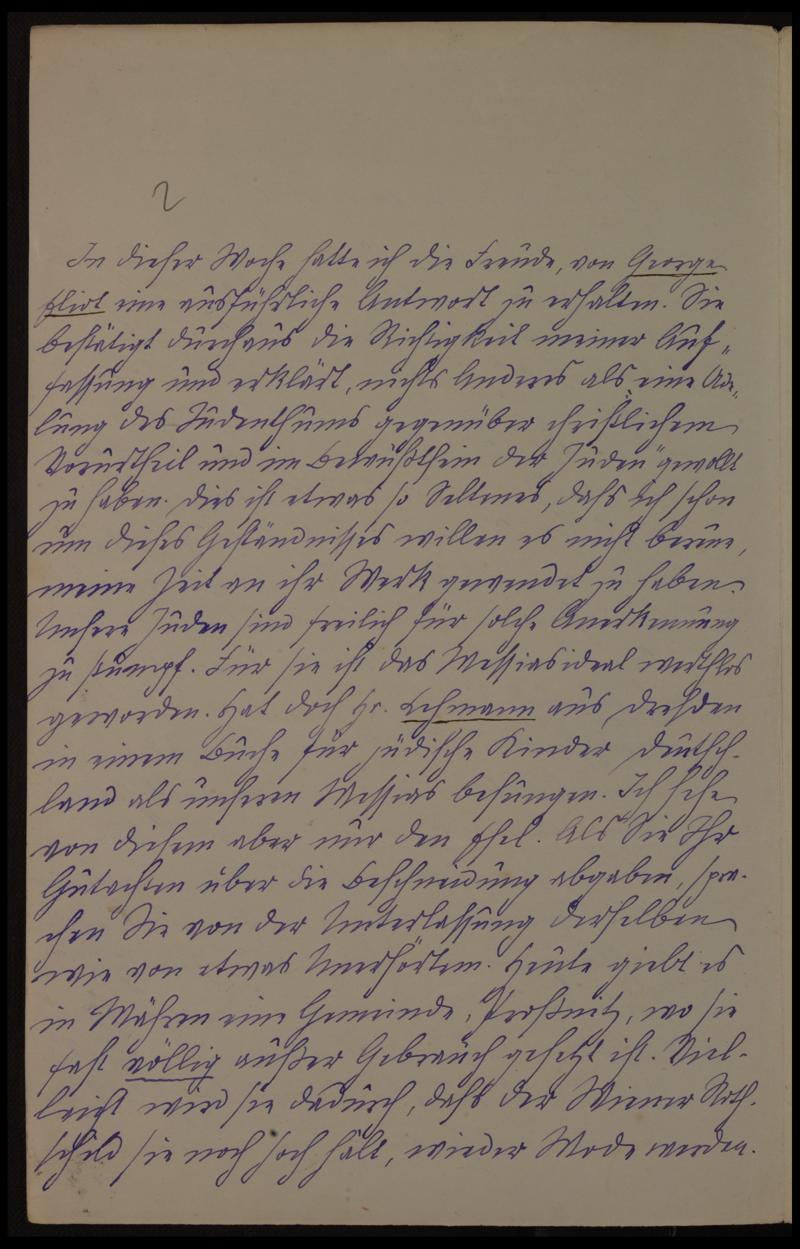 2
In dieser Woche hatte ich die Freude, von George
Eliot eine ausführliche Antwort zu erhalten. Sie
bestätigt durchaus die Richtigkeit meiner Auf-
fassung und erklärt, nichts Anderes als „eine Ade-
lung des Judenthums gegenüber christlichem
Vorurtheil und im Bewußtsein der Juden“ gewollt
zu haben. Dies ist etwas so Seltenes, daß ich schon
um dieses Geständnisses willen es nicht bereue,
meine Zeit an ihr Werk gewendet zu haben.
Unsere Juden sind freilich für solche Anerkennung
zu stumpf. Für sie ist das Messiasideal werthlos
geworden. Hat doch Hr. Lehmann aus Dresden
in einem Buche für jüdische Kinder Deutsch-
land als unseren Messias besungen. Ich sehe
von diesem aber nur den Esel. Als Sie Ihr
Gutachten über die Beschneidung abgaben, spra-
chen Sie von der Unterlassung derselben
wie von etwas Unerhörtem. Heute giebt es
in Mähren eine Gemeinde, Proßnitz, wo sie
fast völlig außer Gebrauch gesetzt ist. Viel-
leicht wird sie dadurch, daß der Wiener Roth-
schild sie noch hoch hält, wieder Mode werden.